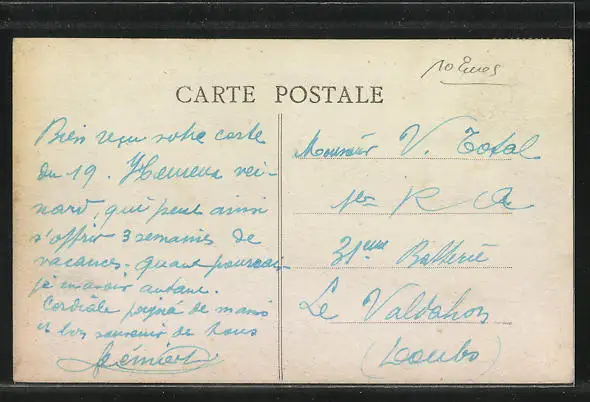 10 Euros
CARTE POSTALE
Bien reçu votre carte
du 19. Heureux vei-
nard, qui peut ainsi
s'offrir 3 semaines de
vacances. Quand pourrais
je en avoir autant.
Cordiale poignée de mains
et bon souvenir de tous
Monsieur V. Total
R A
31eme Batterie
Le Valdahon
(Doubs)